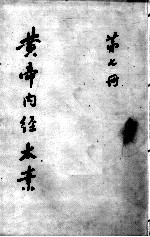 第七册
黄帝内经太素